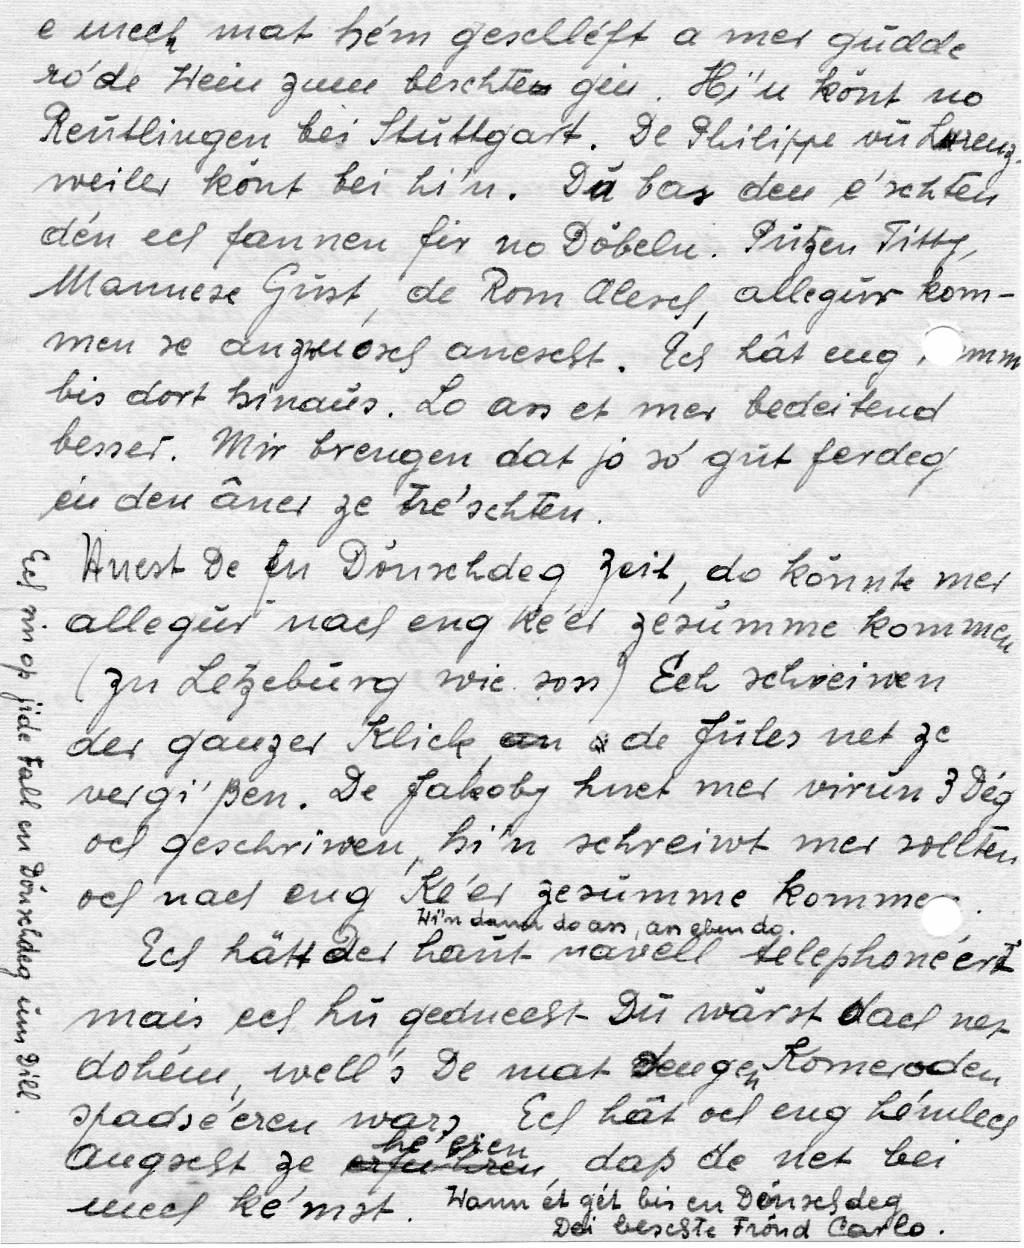 e mech mat hém geschléft a mer gudde
ro'de Wein zum beschten gin. Hi'n könt no
Reutlingen bei Stuttgart. De Philippe vu Lorenz-
weiler könt bei hi'n. Du bas den e'schten
dén ech fannen fir no Döbeln. Putzen Titty,
Mannese Gust, de Rom Alesch, allegur kom-
men se anzwosch anescht. Ech hât eng
bis dort hinaus. Lo ass et mer bedeitend
besser. Mir brengen dat jo so' gut ferdeg
én den âner ze tre'schten.
Huest De en Dönschdeg Zeit, do könnte mer
allegur nach eng Ke'er zesumme kommen
(zu Letzeburg wie soss) Ech schreiwen
der ganzer Klick, a de Jules net ze
vergi'ßen. De Jakoby huet mer virun 3 Dég
och geschriwen, hi'n schreiwt mer sollten
och nach eng Ke'er zesumme kommen.
Wi'n dann do ass, ass eben do.
Ech hätt Der haut navell telephoné'ert
mais ech hu geduecht Du wärst dach net
dohém, well's De mat dengen Komeroden
spadse'eren wars. Ech hât och eng hémlech
Angscht ze he'eren, daß de net bei
mech ke'mst. Wann ét gét bis en Dönschdeg
Dei beschte Frönd Carlo.
Ech sin op jide Fall en Dönschdeg um Dill.